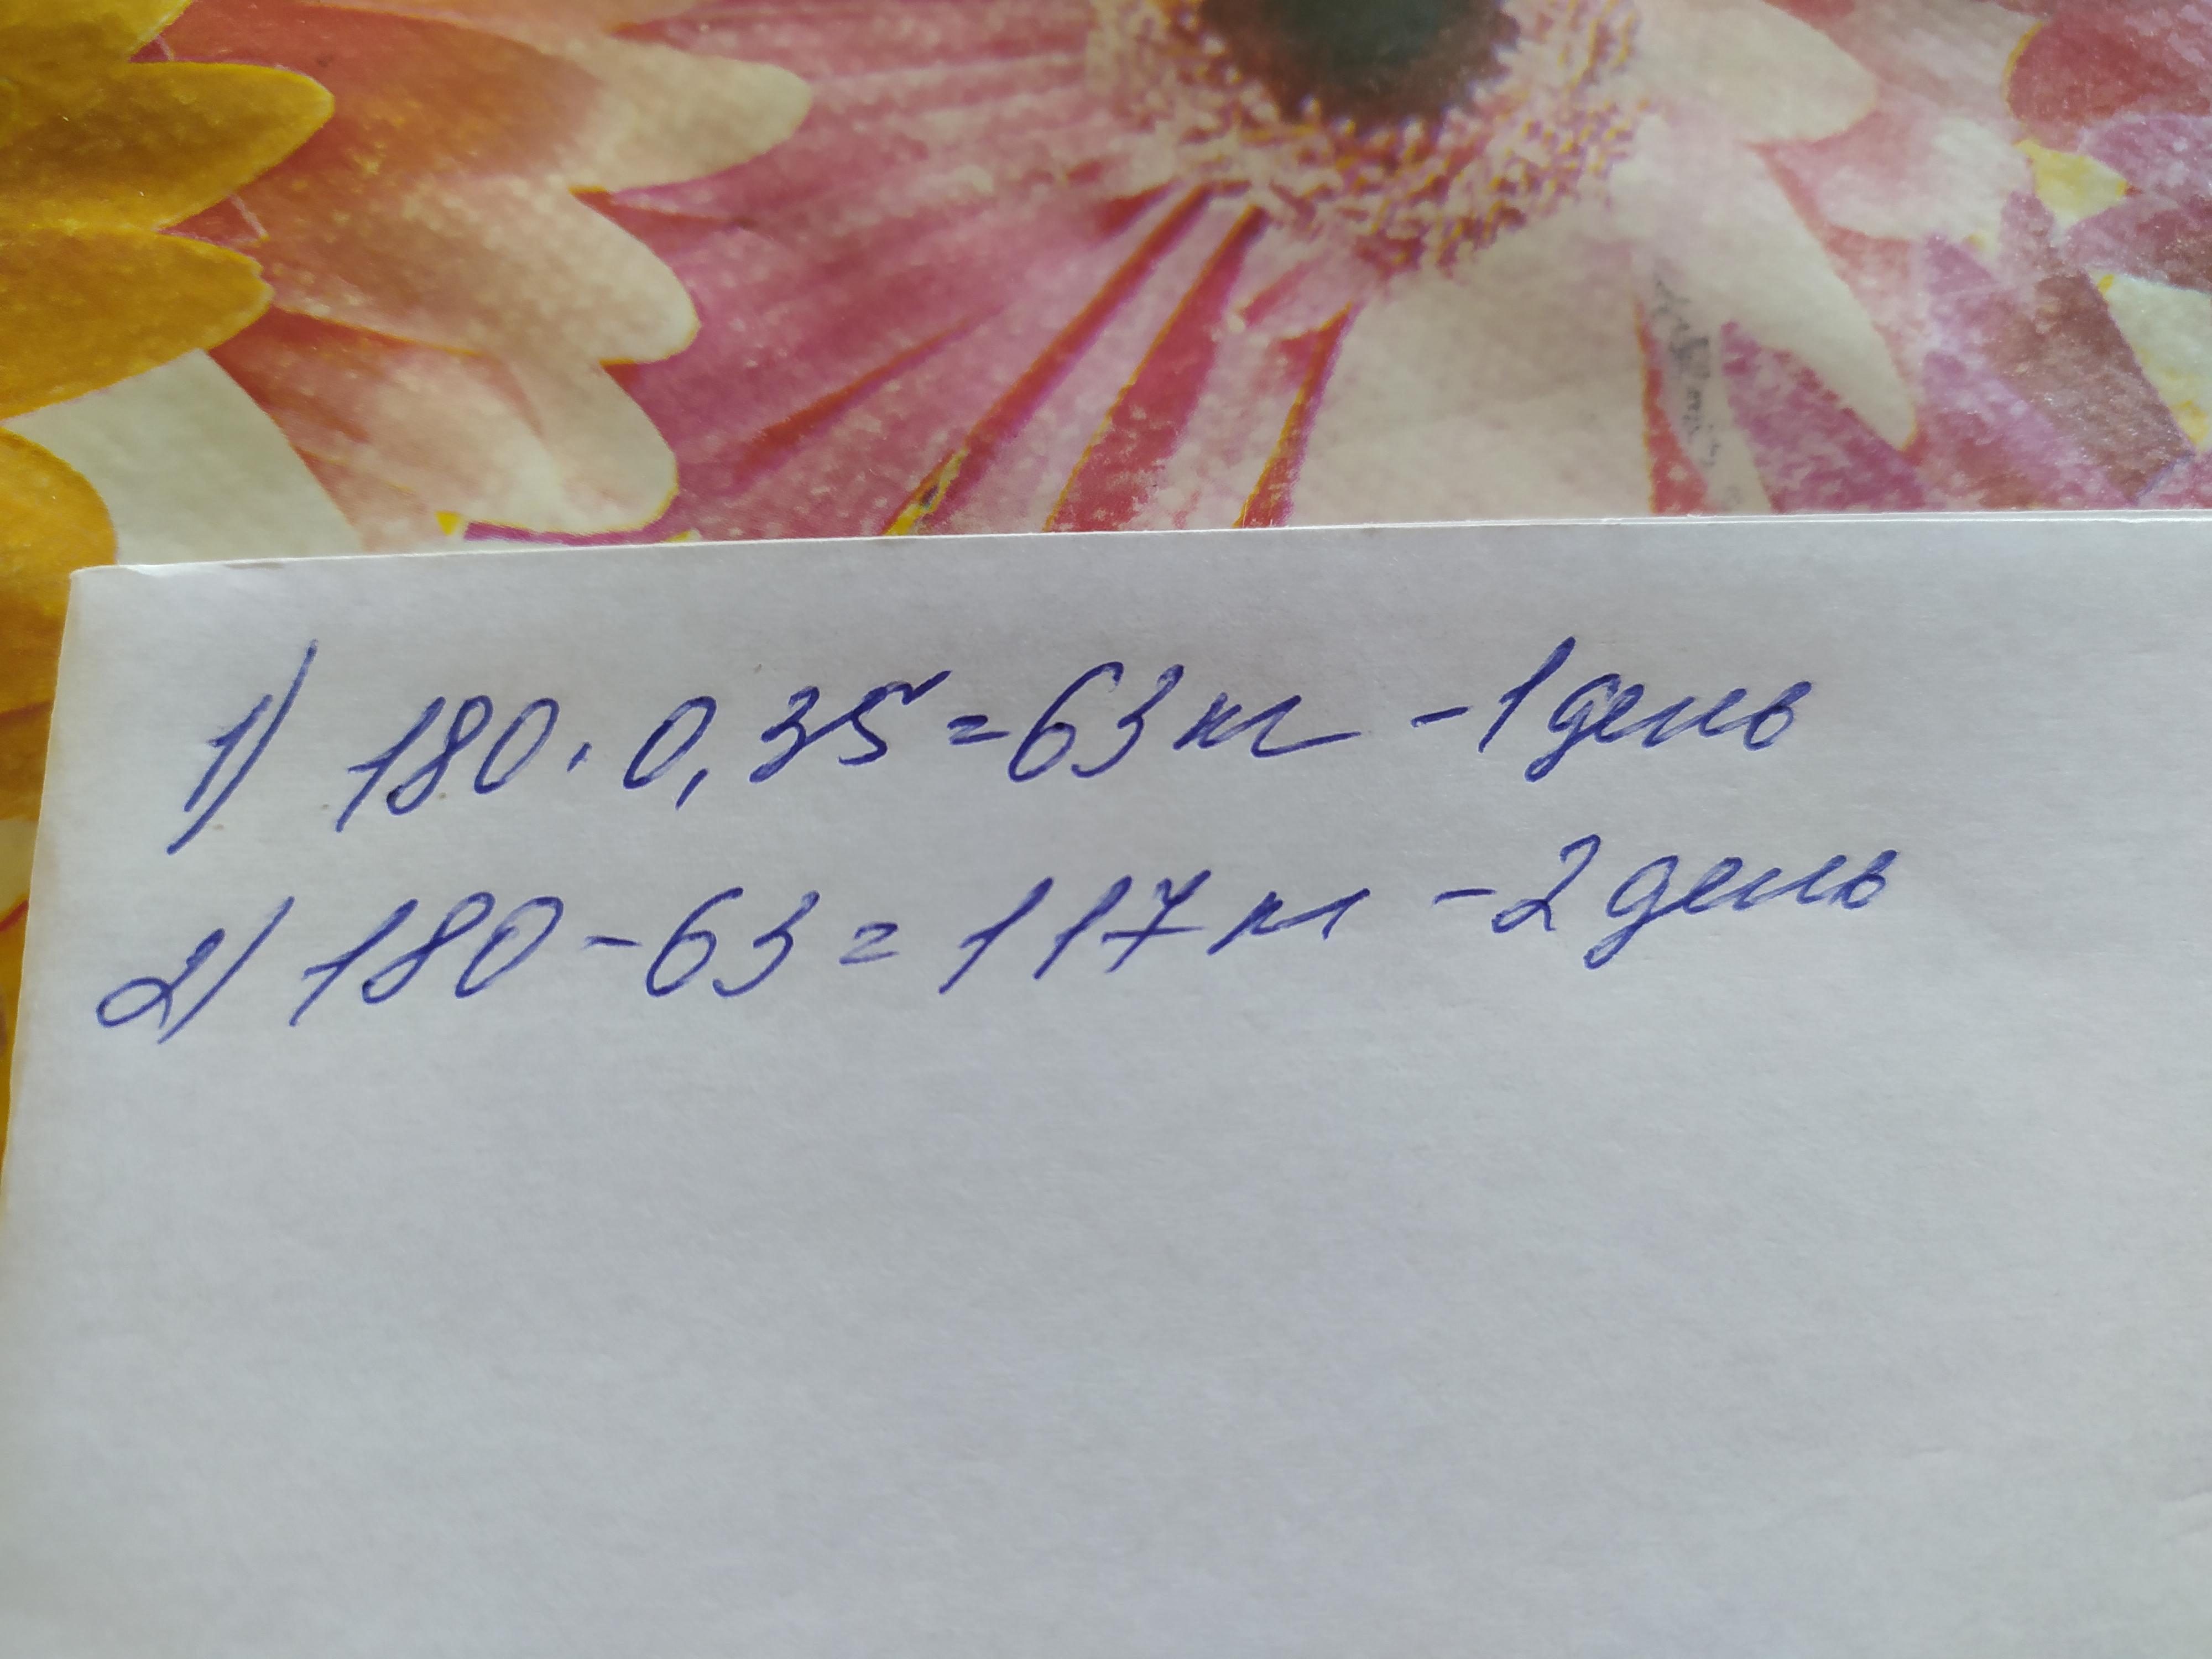 1) 180 · 0,35 = 63 кг - 1 день
2) 180 - 63 = 117 кг - 2 день